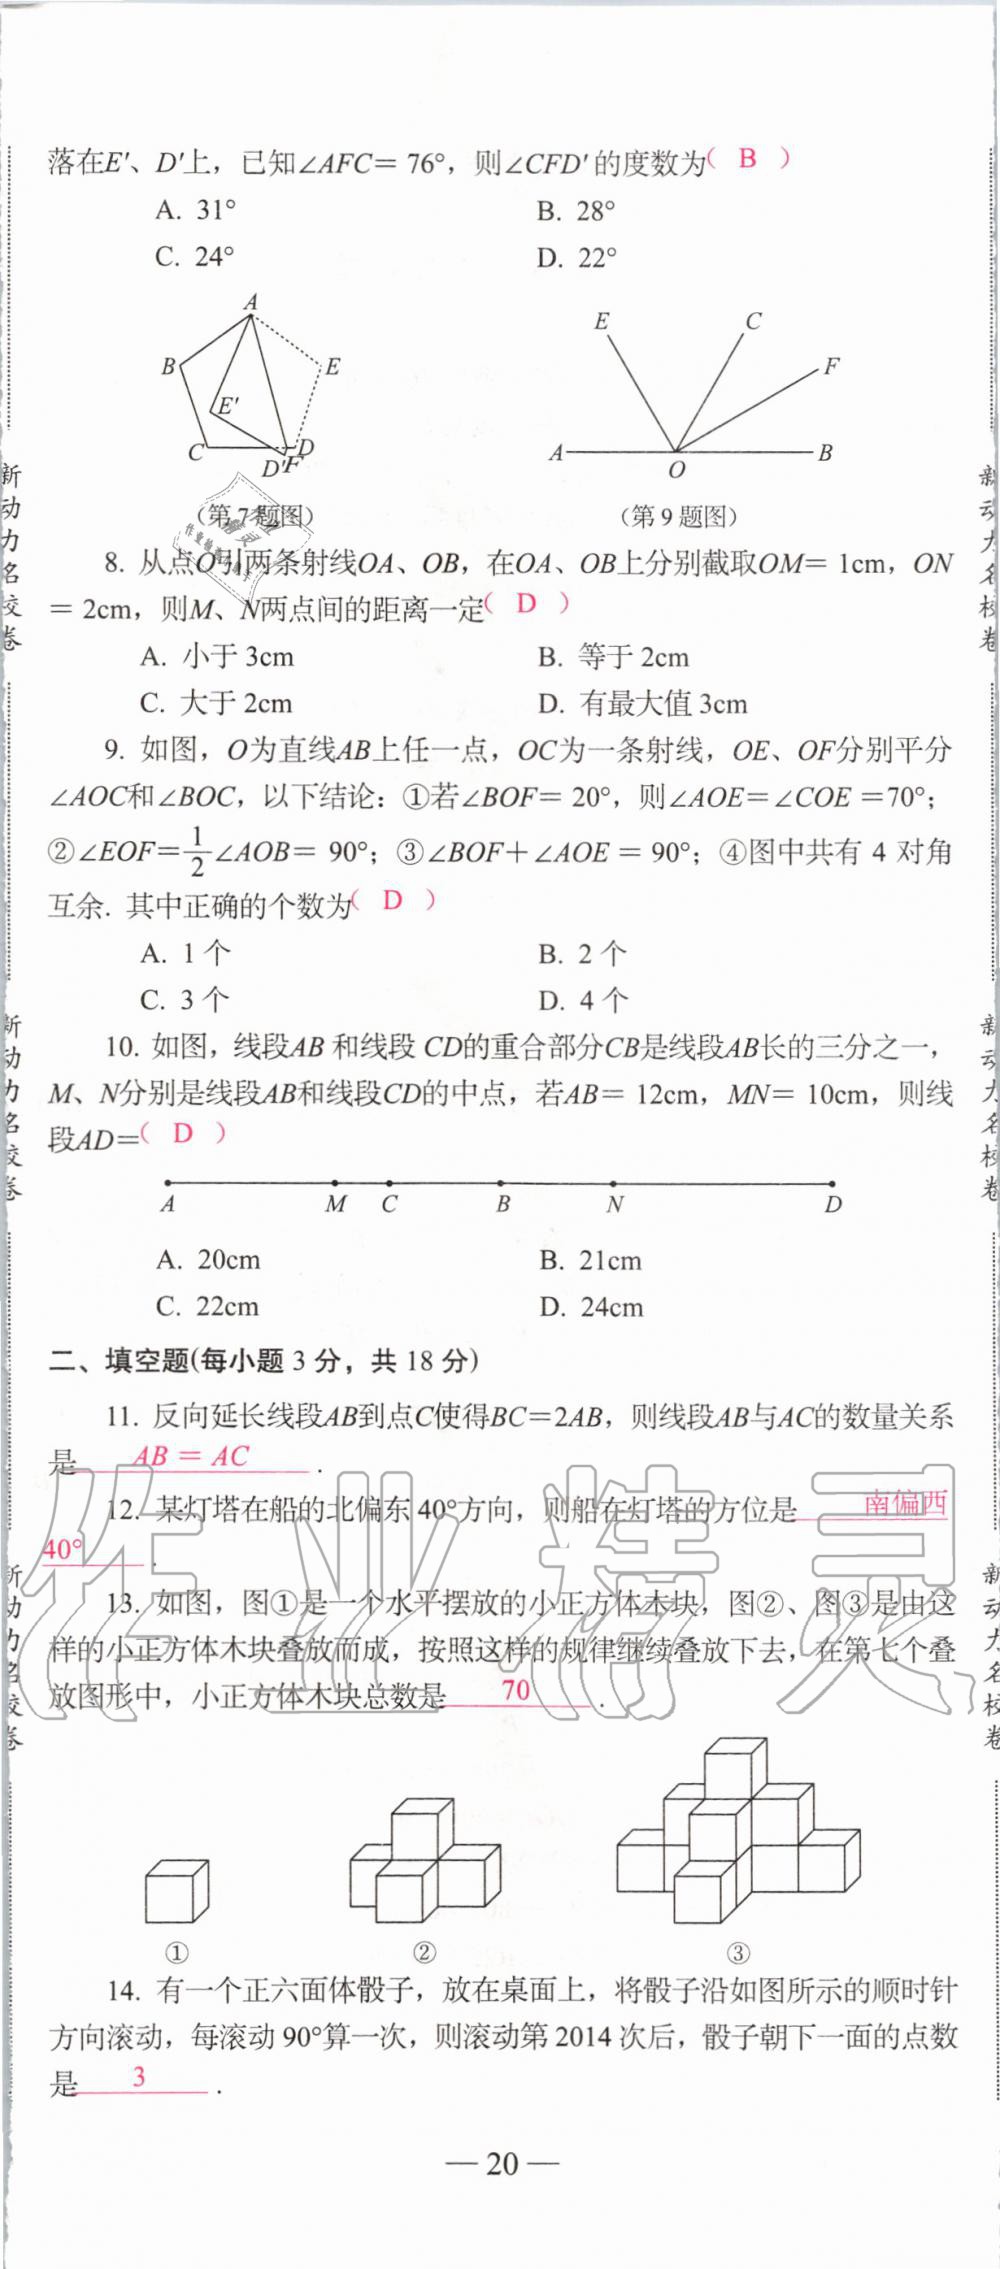 落在E′、D′上，已知∠AFC= 76°，则∠CFD′的度数为( B )
A. 31°  B. 28°
C. 24°  D. 22°
A
B
E
E′
C
D
D′F
(第7题图)
E
C
F
A
O
B
(第9题图)
8. 从点O引两条射线OA、OB，在OA、OB上分别截取OM= 1cm，ON
= 2cm，则M、N两点间的距离一定( D )
A. 小于 3cm  B. 等于 2cm
C. 大于 2cm  D. 有最大值 3cm
9. 如图，O为直线AB上任一点，OC为一条射线，OE、OF分别平分
∠AOC和∠BOC，以下结论：①若∠BOF= 20°，则∠AOE=∠COE =70°；
②∠EOF=1/2∠AOB= 90°；③∠BOF+∠AOE = 90°；④图中共有 4 对角
互余. 其中正确的个数为( D )
A. 1 个  B. 2 个
C. 3 个  D. 4 个
10. 如图，线段AB 和线段 CD的重合部分CB是线段AB长的三分之一，
M、N分别是线段AB和线段CD的中点，若AB= 12cm，MN= 10cm，则线
段AD=( D )
A M C B N D
A. 20cm  B. 21cm
C. 22cm  D. 24cm
二、填空题(每小题 3 分，共 18 分)
11. 反向延长线段AB到点C使得BC=2AB，则线段AB与AC的数量关系
是 AB = AC .
12. 某灯塔在船的北偏东 40°方向，则船在灯塔的方位是 南偏西
40° .
13. 如图，图①是一个水平摆放的小正方体木块，图②、图③是由这
样的小正方体木块叠放而成，按照这样的规律继续叠放下去，在第七个叠
放图形中，小正方体木块总数是 70 .
① ② ③
14. 有一个正六面体骰子，放在桌面上，将骰子沿如图所示的顺时针
方向滚动，每滚动 90°算一次，则滚动第 2014 次后，骰子朝下一面的点数
是 3 .
— 20 —
新动力名校卷
新动力名校卷
新动力名校卷
作业精灵